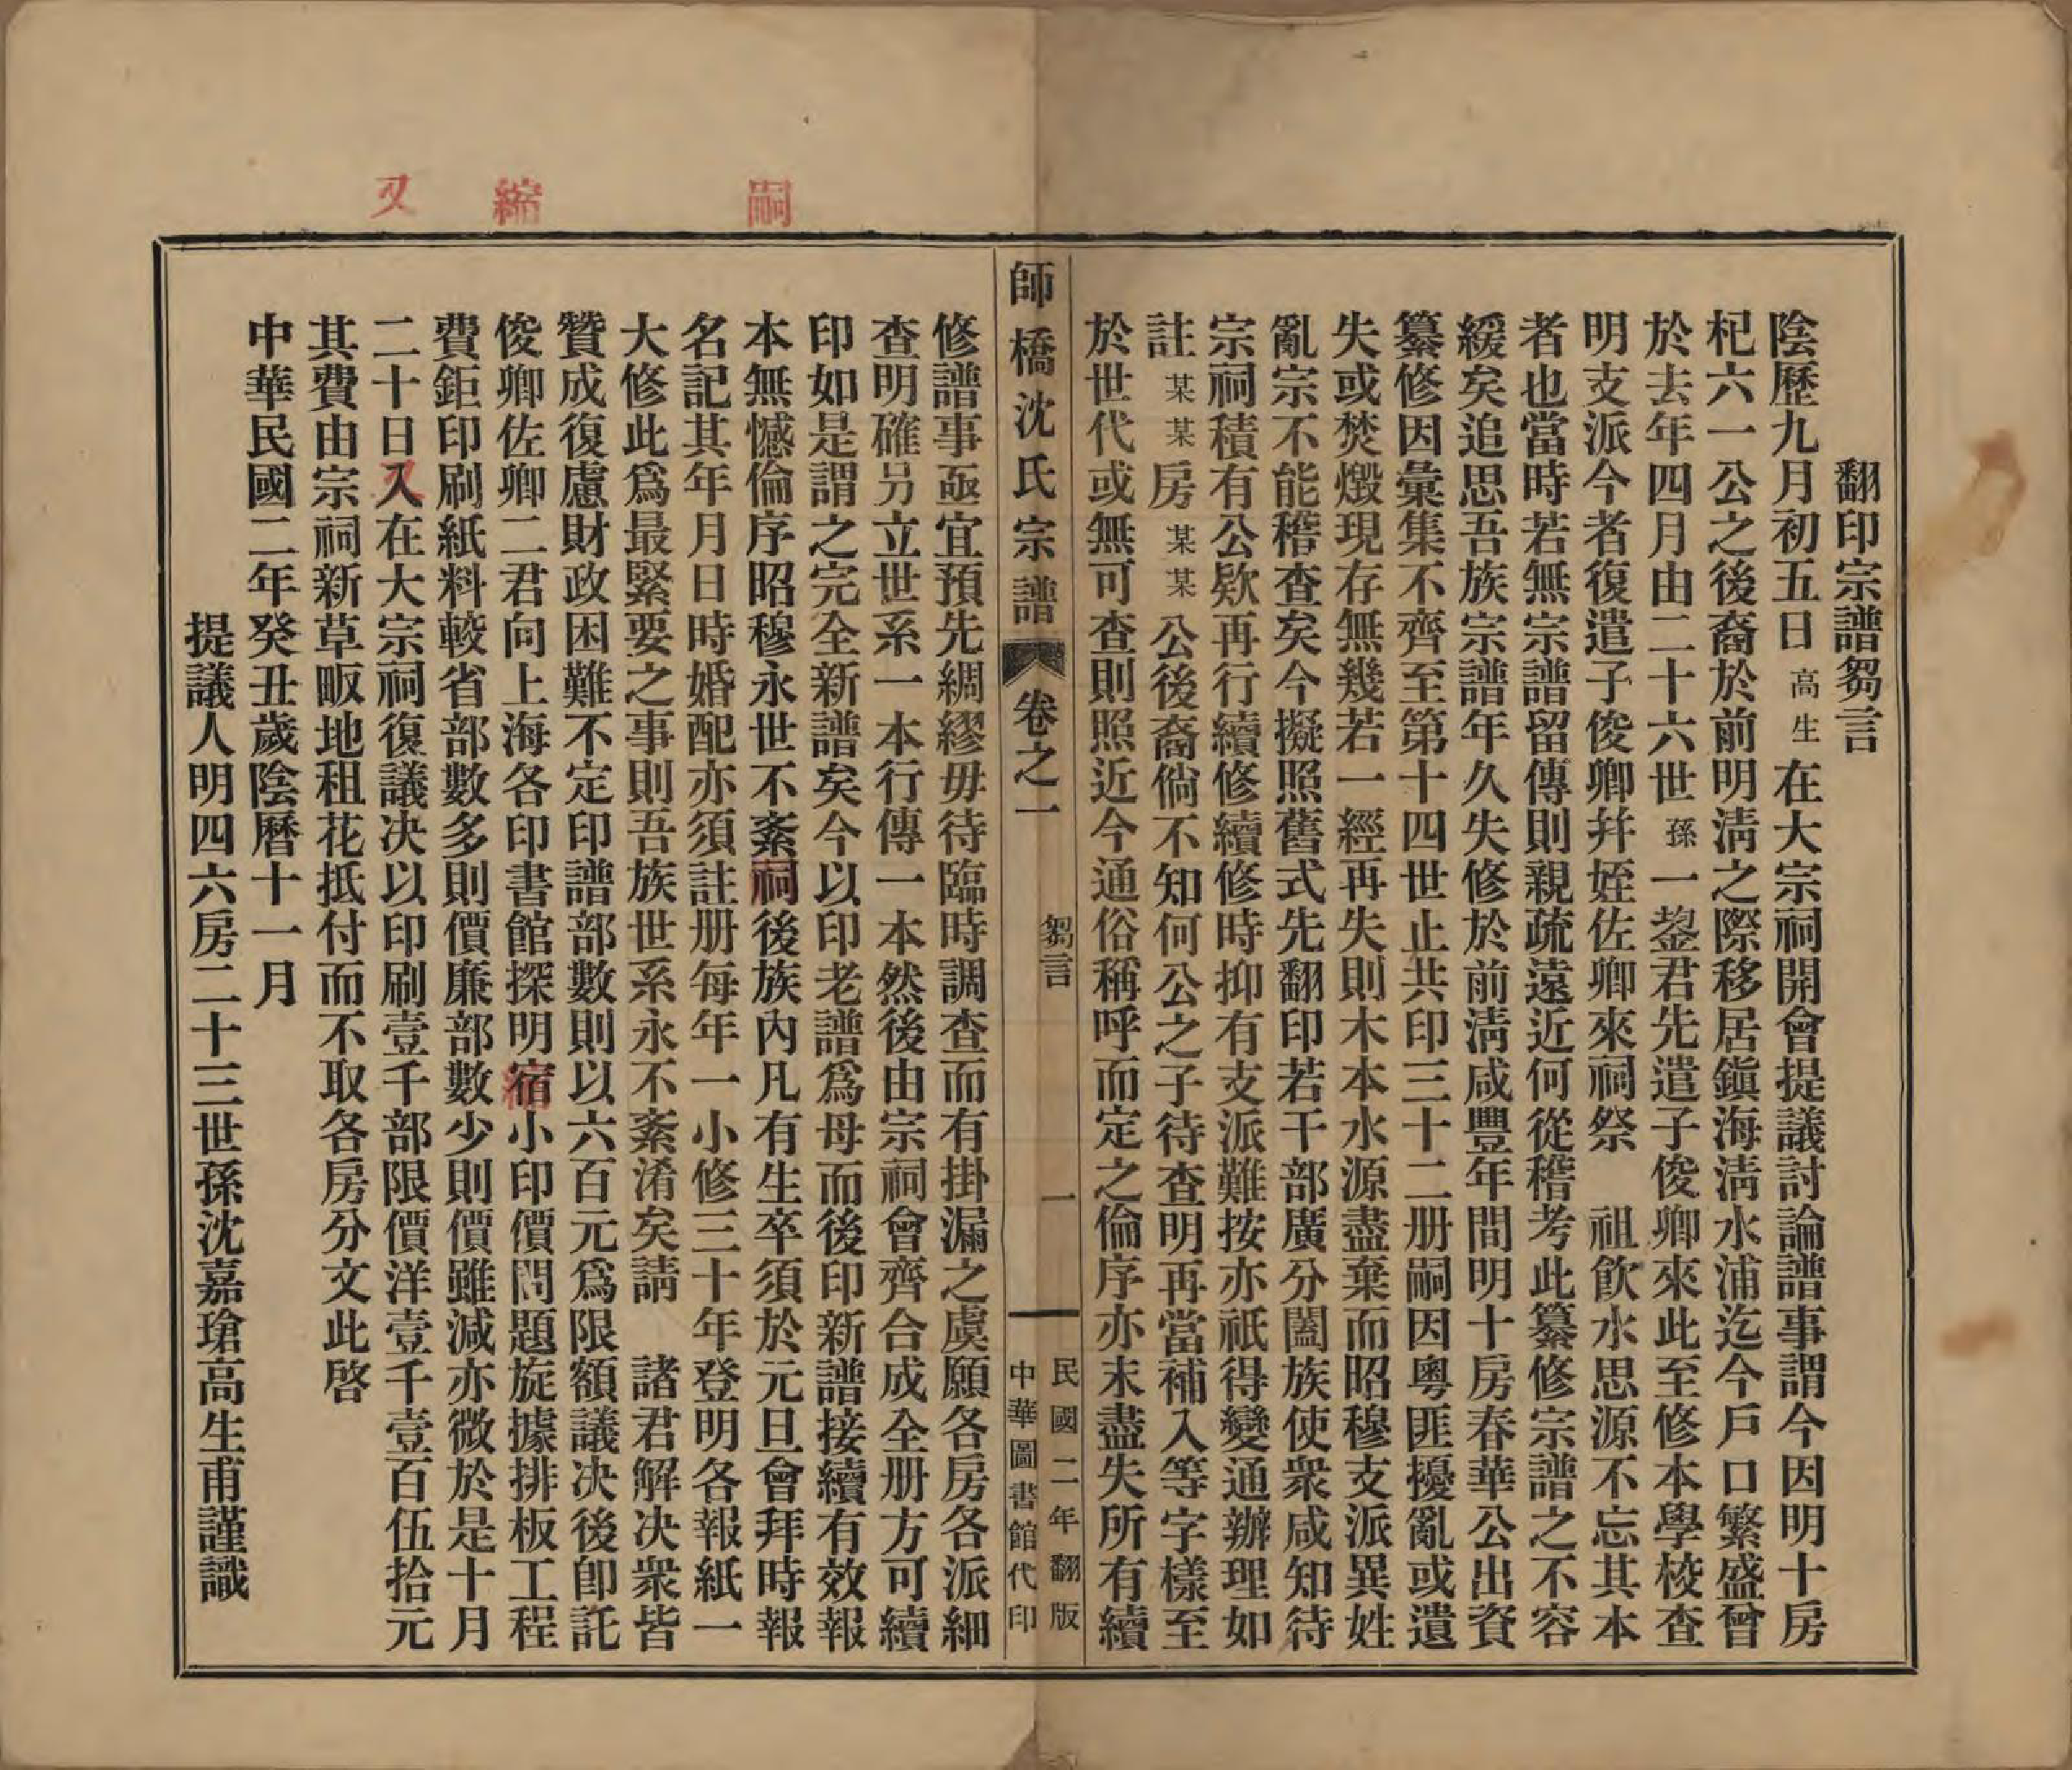 翻印宗譜芻言
陰歷九月初五日高生在大宗祠開會提議討論譜事謂今因明十房
杞六一公之後裔於前明淸之際移居鎭海淸水浦迄今戶口繁盛曾
於去年四月由二十六世孫一鋆君先遣子俊卿來此至修本學校查
明支派今者復遣子俊卿幷姪佐卿來祠祭　祖飮水思源不忘其本
者也當時若無宗譜留傳則親疏遠近何從稽考此纂修宗譜之不容
緩矣追思吾族宗譜年久失修於前淸咸豐年間明十房春華公出資
纂修因彙集不齊至第十四世止共印三十二册嗣因粵匪擾亂或遺
失或焚燬現存無幾若一經再失則木本水源盡棄而昭穆支派異姓
亂宗不能稽查矣今擬照舊式先翻印若干部廣分闔族使衆咸知待
宗祠積有公欵再行續修續修時抑有支派難按亦祇得變通辦理如
註某某房某某公後裔倘不知何公之子待查明再當補入等字樣至
於世代或無可查則照近今通俗稱呼而定之倫序亦未盡失所有續
師橋沈氏宗譜　卷之一　芻言　一　民國二年翻版　中華圖書館代印
修譜事亟宜預先綢繆毋待臨時調查而有掛漏之虞願各房各派細
查明確另立世系一本行傳一本然後由宗祠會齊合成全册方可續
印如是謂之完全新譜矣今以印老譜爲母而後印新譜接續有效報
本無憾倫序昭穆永世不紊祠後族內凡有生卒須於元旦會拜時報
名記其年月日時婚配亦須註册每年一小修三十年登明各報紙一
大修此爲最緊要之事則吾族世系永不紊淆矣請　諸君解決衆皆
贊成復慮財政困難不定印譜部數則以六百元爲限額議決後卽託
俊卿佐卿二君向上海各印書館探明宿小印價問題旋據排板工程
費鉅印刷紙料較省部數多則價廉部數少則價雖減亦微於是十月
二十日入在大宗祠復議決以印刷壹千部限價洋壹千壹百伍拾元
其費由宗祠新草畈地租花抵付而不取各房分文此啓
中華民國二年癸丑歲陰曆十一月
提議人明四六房二十三世孫沈嘉瑲高生甫謹識
嗣
縮
又